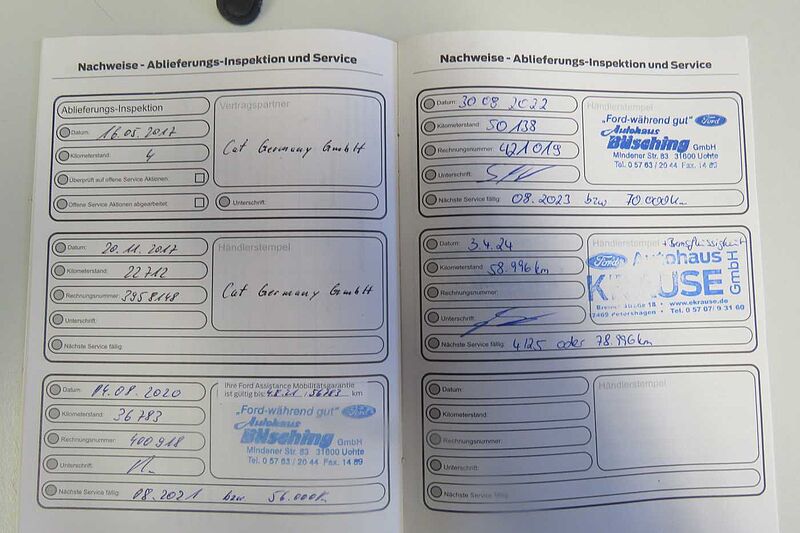 Nachweise - Ablieferungs-Inspektion und Service
Ablieferungs-Inspektion
Datum: 16.05.2017
Kilometerstand: 4
Überprüft auf offene Service Aktionen:
Offene Service Aktionen abgearbeitet:
Vertragspartner
Cat Germany GmbH
Unterschrift:
Datum: 20.11.2017
Kilometerstand: 22712
Rechnungsnummer: 3958148
Unterschrift:
Händlerstempel
Cat Germany GmbH
Nächste Service fällig:
Datum: 04.08.2020
Kilometerstand: 36783
Rechnungsnummer: 400918
Unterschrift:
Ihre Ford Assistance Mobilitätsgarantie
ist gültig bis: 4.8.21 / 56783 km
„Ford-während gut" Ford
Autohaus
Büsching GmbH
Mindener Str. 83 31600 Uchte
Tel. 0 57 63 / 20 44 Fax. 14 89
Nächste Service fällig: 08.2021 bzw 56.000km
Nachweise - Ablieferungs-Inspektion und Service
Datum: 30 08 2022
Kilometerstand: 50 138
Rechnungsnummer: 421019
Unterschrift:
Händlerstempel
„Ford-während gut" Ford
Autohaus
Büsching GmbH
Mindener Str. 83 31600 Uchte
Tel. 0 57 63 / 20 44 Fax. 14 89
Nächste Service fällig: 08.2023 bzw 70.000km
Datum: 3.4.24
Kilometerstand: 58.996km
Rechnungsnummer:
Unterschrift:
Händlerstempel + Bremsflüssigkeit
Ford Autohaus
KRAUSE GmbH
18 • www.ekrause.de
Petershagen • Tel. 0 57 07 / 9 31 60
Nächste Service fällig: 4125 oder 78.996km
Datum:
Kilometerstand:
Rechnungsnummer:
Unterschrift:
Händlerstempel
Nächste Service fällig: